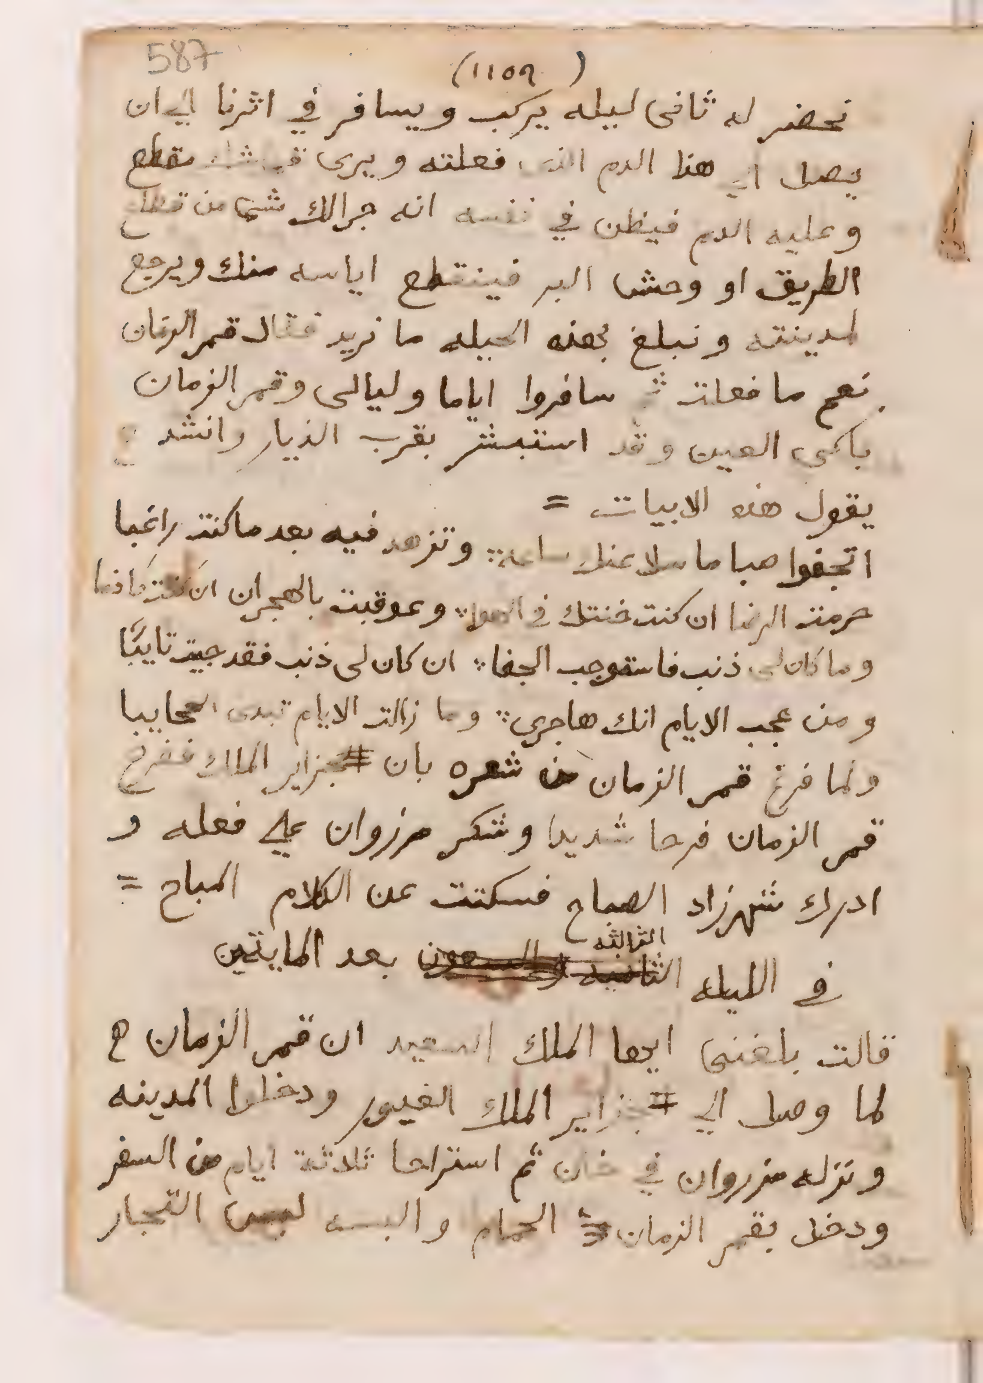 587
(١١٥٩)
نحضر له ثانى ليله يركب ويسافر في اثرنا الي ان
يصل الي هذا الدم الذى فعلته ويرى قماشك مقطع
وعليه الدم فيظن في نفسه انه جرالك شيا من قطاع
الطريق او وحش البر فينقطع اياسه منك ويرجع
لمدينته ونبلغ بهذه الحيله ما نريد فقال قمر الزمان
نعم ما فعلت ثم سافروا اياما وليالى وقمر الزمان
باكى العين وقد استبشر بقرب الديار وانشد
يقول هذه الابيات =
اتجفوا صبا ما سلا عنك ساعه ؞ وتزهد فيه بعد ما كنت راغبا
حرمت الرضا ان كنت خنتك في الهوا ؞ وعوقبت بالهجران ان كنت كاذبا
وما كان لى ذنب فاستوجب الجفا ؞ ان كان لى ذنب فقد جيت تايبًا
ومن عجب الايام انك هاجرى ؞ وما زالت الايام تبدى العجايبا
ولما فرغ قمر الزمان من شعره بان جزاير الملك ففرح
قمر الزمان فرحا شديدا وشكر مرزوان علي فعله و
ادرك شهرزاد الصباح فسكتت عن الكلام المباح =
الثالثه
في الليله الثانيه والسبعون بعد المايتين
قالت بلغنى ايها الملك السعيد ان قمر الزمان
لما وصل الي جزاير الملك الغيور ودخلوا المدينه
ونزله مرزوان في خان ثم استراحا ثلاثة ايام من السفر
ودخل بقمر الزمان الحمام والبسه لبس التجار